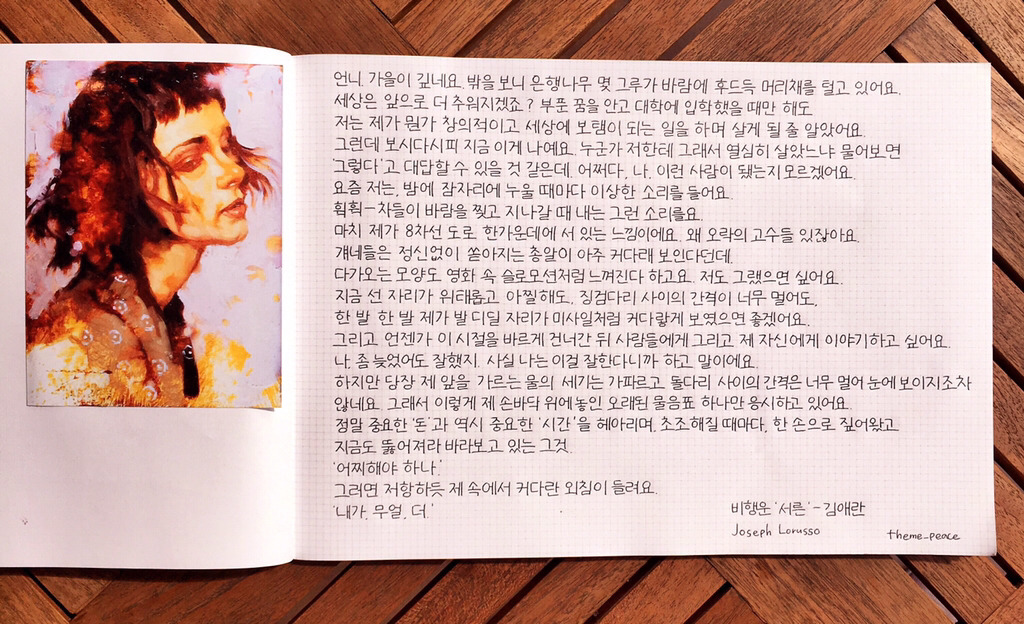 언니. 가을이 깊네요. 밖을 보니 은행나무 몇 그루가 바람에 후드득 머리채를 털고 있어요.
세상은 앞으로 더 추워지겠죠? 부푼 꿈을 안고 대학에 입학했을 때만 해도
저는 제가 뭔가 창의적이고 세상에 보탬이 되는 일을 하며 살게 될 줄 알았어요.
그런데 보시다시피 지금 이게 나예요. 누군가 저한테 그래서 열심히 살았느냐 물어보면
'그렇다'고 대답할 수 있을 것 같은데, 어쩌다, 나, 이런 사람이 됐는지 모르겠어요.
요즘 저는, 밤에 잠자리에 누울 때마다 이상한 소리를 들어요.
휙휙—차들이 바람을 찢고 지나갈 때 내는 그런 소리를요.
마치 제가 8차선 도로 한가운데에 서 있는 느낌이에요. 왜 오락의 고수들 있잖아요.
걔네들은 정신없이 쏟아지는 총알이 아주 커다래 보인다던데.
다가오는 모양도 영화 속 슬로모션처럼 느껴진다 하고요. 저도 그랬으면 싶어요.
지금 선 자리가 위태롭고 아찔해도, 징검다리 사이의 간격이 너무 멀어도,
한 발 한 발 제가 발 디딜 자리가 미사일처럼 커다랗게 보였으면 좋겠어요.
그리고 언젠가 이 시절을 바르게 건너간 뒤 사람들에게 그리고 제 자신에게 이야기하고 싶어요.
나, 좀 늦었어도 잘했지. 사실 나는 이걸 잘한다니까 하고 말이에요.
하지만 당장 제 앞을 가르는 물의 세기는 가파르고, 돌다리 사이의 간격은 너무 멀어 눈에 보이지조차
않네요. 그래서 이렇게 제 손바닥 위에 놓인 오래된 물음표 하나만 응시하고 있어요.
정말 중요한 '돈'과 역시 중요한 '시간'을 헤아리며, 초조해질 때마다, 한 손으로 짚어왔고
지금도 뚫어져라 바라보고 있는 그것.
'어찌해야 하나.'
그러면 저항하듯 제 속에서 커다란 외침이 들려요.
'내가, 무얼, 더.'
비행운 '서른' - 김애란
Joseph Lorusso
theme_peace